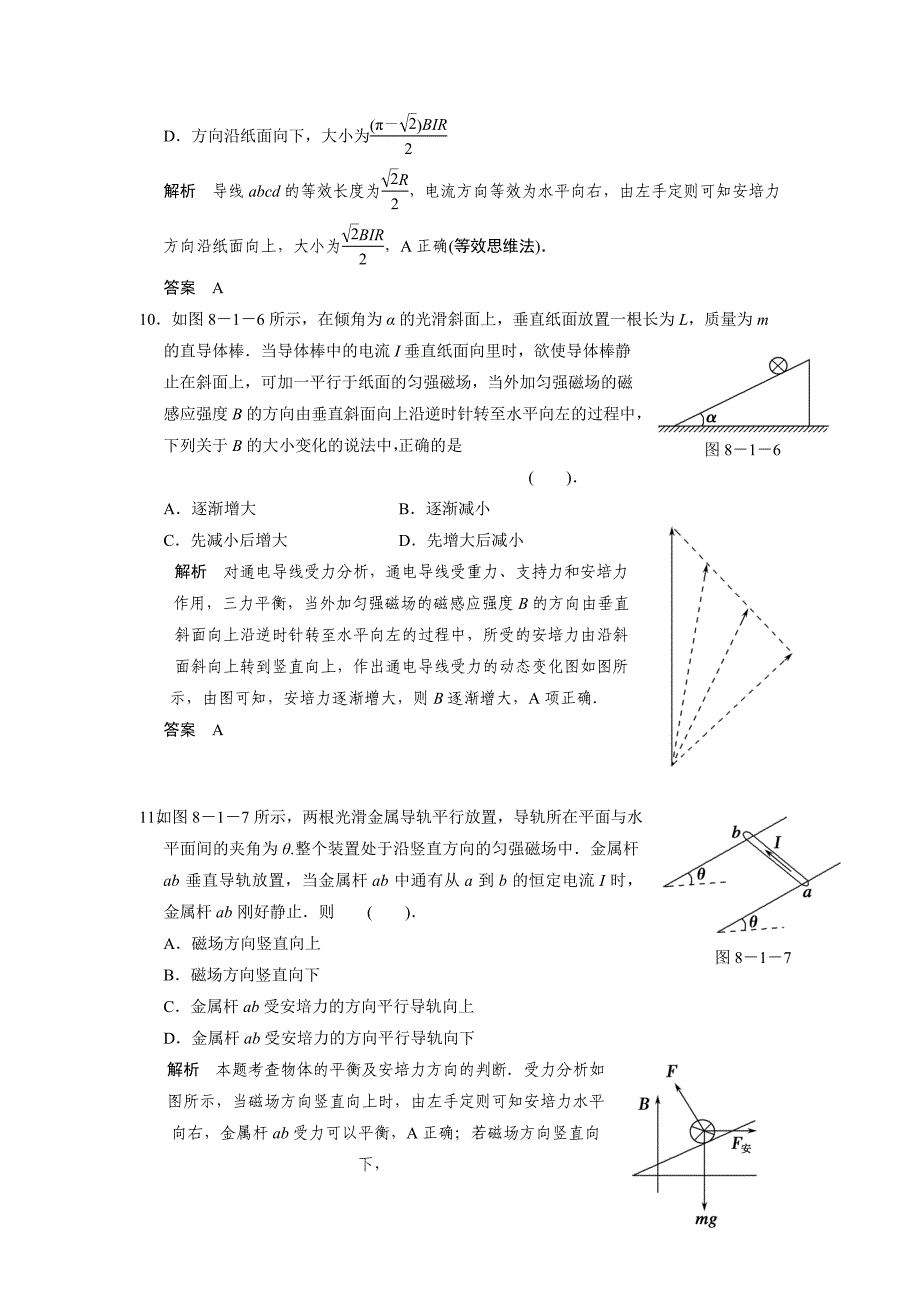 D．方向沿纸面向下，大小为(π－√2)BIR/2
解析　导线 abcd 的等效长度为√2R/2，电流方向等效为水平向右，由左手定则可知安培力
方向沿纸面向上，大小为√2BIR/2，A 正确(等效思维法)．
答案　A
10．如图 8－1－6 所示，在倾角为 α 的光滑斜面上，垂直纸面放置一根长为 L，质量为 m
的直导体棒．当导体棒中的电流 I 垂直纸面向里时，欲使导体棒静
止在斜面上，可加一平行于纸面的匀强磁场，当外加匀强磁场的磁
感应强度 B 的方向由垂直斜面向上沿逆时针转至水平向左的过程中，
下列关于 B 的大小变化的说法中，正确的是
(　　)．
α
图 8－1－6
A．逐渐增大　　B．逐渐减小
C．先减小后增大　　D．先增大后减小
解析　对通电导线受力分析，通电导线受重力、支持力和安培力
作用，三力平衡，当外加匀强磁场的磁感应强度 B 的方向由垂直
斜面向上沿逆时针转至水平向左的过程中，所受的安培力由沿斜
面斜向上转到竖直向上，作出通电导线受力的动态变化图如图所
示，由图可知，安培力逐渐增大，则 B 逐渐增大，A 项正确．
答案　A
11.如图 8－1－7 所示，两根光滑金属导轨平行放置，导轨所在平面与水
平面间的夹角为 θ.整个装置处于沿竖直方向的匀强磁场中．金属杆
ab 垂直导轨放置，当金属杆 ab 中通有从 a 到 b 的恒定电流 I 时，
金属杆 ab 刚好静止．则　　(　　)．
b I
θ a
θ
图 8－1－7
A．磁场方向竖直向上
B．磁场方向竖直向下
C．金属杆 ab 受安培力的方向平行导轨向上
D．金属杆 ab 受安培力的方向平行导轨向下
解析　本题考查物体的平衡及安培力方向的判断．受力分析如
图所示，当磁场方向竖直向上时，由左手定则可知安培力水平
向右，金属杆 ab 受力可以平衡，A 正确；若磁场方向竖直向
下，
F
B
F安
mg